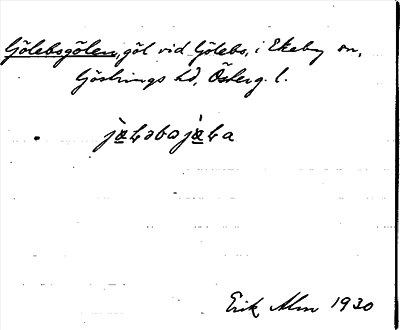 Gölebogölen, göl vid Gölebo, i Ekeby sn,
Göstrings hd, Österg. l.
Erik Alm 1930